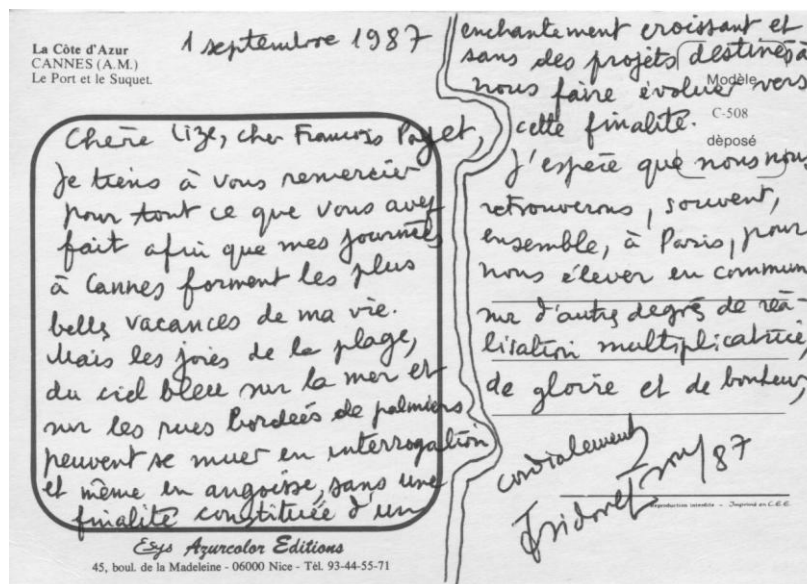 La Côte d'Azur
CANNES (A.M.)
Le Port et le Suquet.
1 septembre 1987
Chère Lize, cher François Paget,
Je tiens à vous remercier
pour tout ce que vous avez
fait afin que mes journées
à Cannes forment les plus
belles vacances de ma vie.
Mais les joies de la plage,
du ciel bleu sur la mer et
sur les rues bordées de palmiers
peuvent se muer en interrogation
et même en angoisse, sans une
finalité constituée d'un
enchantement croissant et
sans des projets destinés à
nous faire évoluer vers
cette finalité.
Modèle
C-508
dèposé
J'espère que nous nous
retrouverons, souvent,
ensemble, à Paris, pour
nous élever en commun
sur d'autres degrés de réa-
lisation multiplicatrice,
de gloire et de bonheur,
cordialement
Isidore Isou/87
Reproduction interdite - Imprimé en C.E.E.
Azurcolor Editions
45, boul. de la Madeleine - 06000 Nice - Tèl. 93-44-55-71